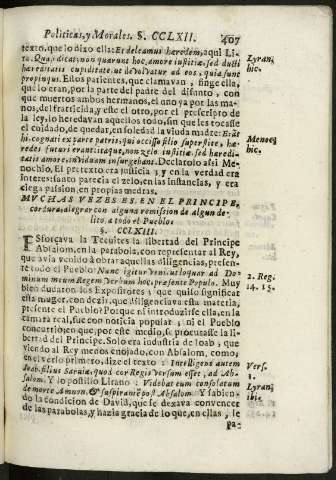 Politicas, y Morales. §. CCLXII. 407
texto, que lo dizo ella: Et deleamus hæredem, aqui Li-
ra. Qua. dicat, non quærunt hoc, amore iustitiæ, sed ducti
hæreditatis cupiditate, ut devolvatur ad eos, qui a sunt
propinqui. Estos parientes, que clamavan, finge ella,
que lo eran, por la parte del padre del difunto, con
que muertos ambos hermanos, el uno ya por las ma-
nos, del fratricida, y este el otro, por el prescripto de
la ley, lo heredavan aquellos todo, sin que les tocasse
el cuidado, de quedar, en soledad la viuda madre: Et
hi, cognati ex parte patris, qui occiso filio superstite, hæ-
redes futuri erant: itaque, non zelo iustitiæ, sed heredi-
tatis amore, in viduam insurgebant. Declarolo assi Me-
nochio. El pretexto era justicia; y en la verdad era
interes: santo parecia el zelo, en las instancias, y era
ciega passion, en propias medras.
Lyran,
hic.
Menoch.
hic.
MUCHAS VEZES ES EN EL PRINCIPE,
cordura, alegrar con alguna remission de algun de-
lito, a todo el Pueblo.
§. CCLXIII.
Esforçava la Tecuites la libertad del Principe
Absalon, en la parabola, con representar al Rey,
que avia venido à obrar aquellas diligencias, presen-
te todo el Pueblo: Nunc igitur veni, ut loquar ad Do-
minum meum Regem verbum hoc, præsente Populo. Muy
bien dudaron los Expositores; y que quiso significar
esta muger, con dezir, que diligenciava esta materia,
presente el Pueblo? Porque ni introduzirse ella, en la
camara real, fue con noticia popular, ni el Pueblo
concurriò, en que, por este medio, se procurasse la li-
bertad del Principe. Solo era industria de Ioab, que
viendo al Rey menos enojado, con Absalom, como
en el verso primero, dize el texto: Intelligens autem
Ioab filius Sarviæ, quod cor Regis versum esset, ad Ab-
salom. Y lo postillo Lirano: Videbat eum consolatum
de morte Amnon, & suspirare post Absalom. Y sabien-
do la condicion de David, que se dexava convencer
de las parabolas, y hazia gracia de lo que, en ellas, se
2. Reg.
14. 15.
Vers.
1.
Lyran,
hic.
pa-